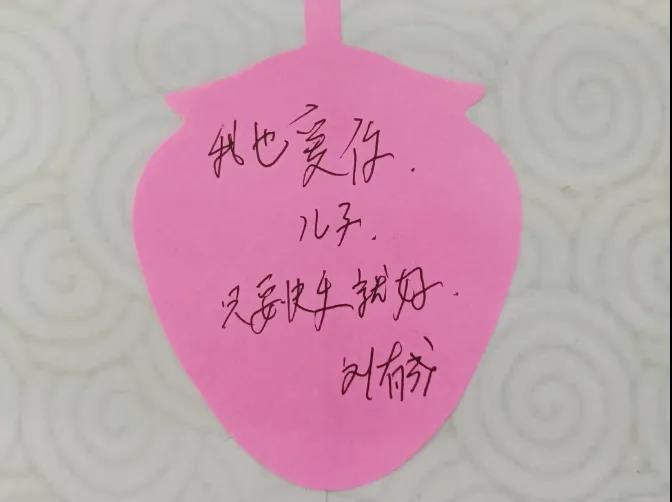 我也爱你.
儿子.
只要快乐就好.
刘有成